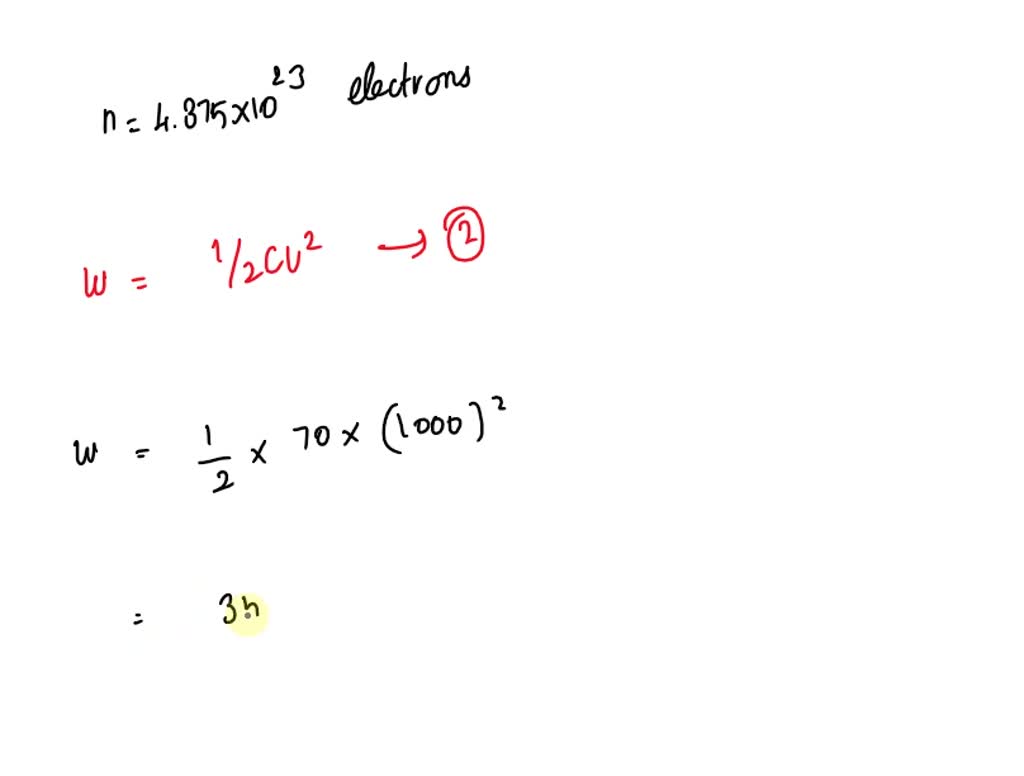 n = 4.375×10²³ electrons
W = 1/2 CV² → ②
W = 1/2 × 70 × (1000)²
= 3